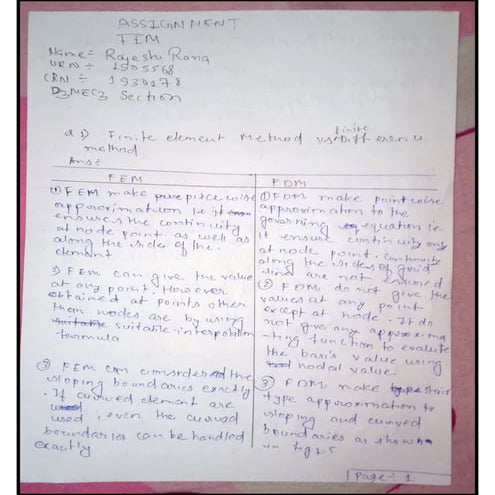 ASSIGNMENT
FEM
Name÷ Rajesh Rana
URN ÷ 1505568
CRN ÷ 1930178
D3MEC3 Section
Q 1) Finite element Method vs finite difference
method
Ans÷
FEM
① FEM make piece wise
approximation i.e it
ensures the continuity
at node point as well as
along the sides of the
element
2) FEM can give the value
at any point. However
obtained at points other
than nodes are by using
suitable interpolation
formula
③ FEM can considered the
sloping boundaries exactly
. If curved element are
used, even the curved
boundaries can be handled
exactly
FDM
① FDM make pointwise
approximation to the
governing equation i.e.
it ensure continuity only
at node point. Continuity
along the sides of grid
line are not ensured
② FDM do not give the
values at any point
except at node. It do
not give any approxima
-ting function to evaluate
the basis value using
nodal value.
③ FDM make stair
type approximation to
sloping and curved
boundaries as shown
in fig 1.5
Page-: 1